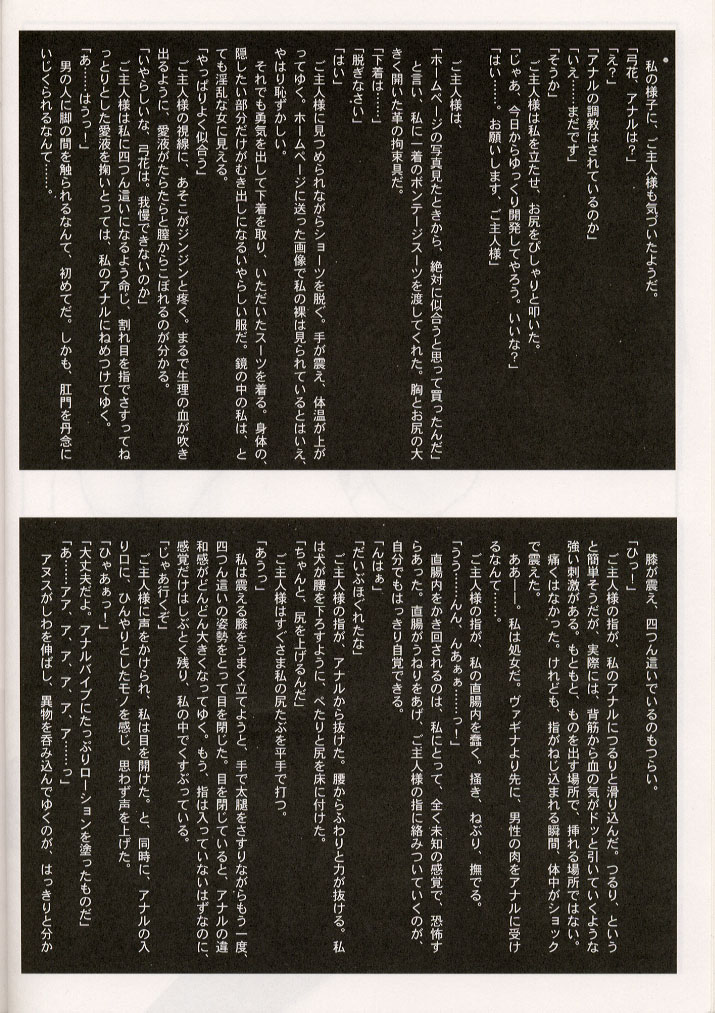 私の様子に、ご主人様も気づいたようだ。
「弓花、アナルは？」
「え？」
「アナルの調教はされているのか」
「いえ……まだです」
「そうか」
ご主人様は私を立たせ、お尻をぴしゃりと叩いた。
「じゃあ、今日からゆっくり開発してやろう。いいな？」
「はい……。お願いします、ご主人様」
ご主人様は、
「ホームページの写真見たときから、絶対に似合うと思って買ったんだ」
と言い、私に一着のボンテージスーツを渡してくれた。胸とお尻の大
きく開いた革の拘束具だ。
「下着は……」
「脱ぎなさい」
「はい」
ご主人様に見つめられながらショーツを脱ぐ。手が震え、体温が上が
ってゆく。ホームページに送った画像で私の裸は見られているとはいえ、
やはり恥ずかしい。
それでも勇気を出して下着を取り、いただいたスーツを着る。身体の、
隠したい部分だけがむき出しになるいやらしい服だ。鏡の中の私は、と
ても淫乱な女に見える。
「やっぱりよく似合う」
ご主人様の視線に、あそこがジンジンと疼く。まるで生理の血が吹き
出るように、愛液がたらたらと膣からこぼれるのが分かる。
「いやらしいな、弓花は。我慢できないのか」
ご主人様は私に四つん這いになるよう命じ、割れ目を指でさすってね
っとりとした愛液を掬いとっては、私のアナルにねめつけてゆく。
「あ……はうっ！」
男の人に脚の間を触られるなんて、初めてだ。しかも、肛門を丹念に
いじくられるなんて……。
膝が震え、四つん這いでいるのもつらい。
「ひっ！」
ご主人様の指が、私のアナルにつるりと滑り込んだ。つるり、という
と簡単そうだが、実際には、背筋から血の気がドッと引いていくような
強い刺激がある。もともと、ものを出す場所で、挿れる場所ではない。
痛くはなかった。けれども、指がねじ込まれる瞬間、体中がショック
で震えた。
ああ――。私は処女だ。ヴァギナより先に、男性の肉をアナルに受け
るなんて……。
ご主人様の指が、私の直腸内を蠢く。掻き、ねぶり、撫でる。
「うぅ……んん、んあぁぁ……っ！」
直腸内をかき回されるのは、私にとって、全く未知の感覚で、恐怖す
らあった。直腸がうねりをあげ、ご主人様の指に絡みついていくのが、
自分でもはっきり自覚できる。
「んはぁ」
「だいぶほぐれたな」
ご主人様の指が、アナルから抜けた。腰からふわりと力が抜ける。私
は犬が腰を下ろすように、ぺたりと尻を床に付けた。
「ちゃんと、尻を上げるんだ」
ご主人様はすぐさま私の尻たぶを平手で打つ。
「あうっ」
私は震える膝をうまく立てようと、手で太腿をさすりながらもう一度、
四つん這いの姿勢をとって目を閉じた。目を閉じていると、アナルの違
和感がどんどん大きくなってゆく。もう、指は入っていないはずなのに、
感覚だけはしぶとく残り、私の中でくすぶっている。
「じゃあ行くぞ」
ご主人様に声をかけられ、私は目を開けた。と、同時に、アナルの入
り口に、ひんやりとしたモノを感じ、思わず声を上げた。
「ひゃあぁっ！」
「大丈夫だよ。アナルバイブにたっぷりローションを塗ったものだ」
「あ……アァ、ア、ア、ア、ア……っ」
アヌスがしわを伸ばし、異物を呑み込んでゆくのが、はっきりと分か